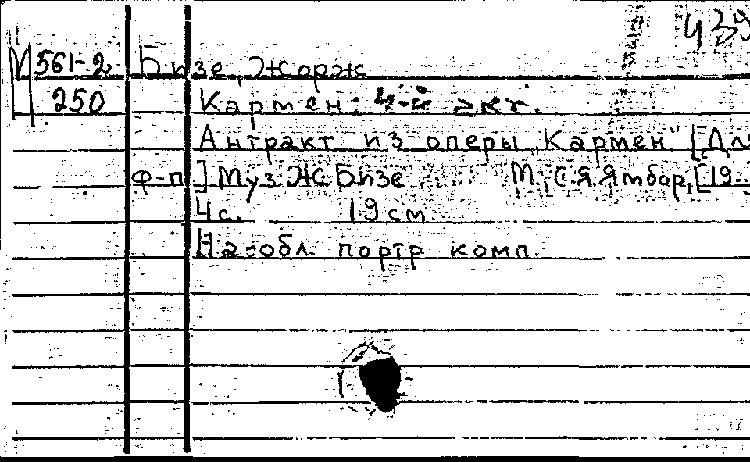 439
М561-2 Бизе, Жорж
250 Кармен: 4-й акт.
Антракт из оперы „Кармен" [Для
ф-п] Муз Ж Бизе М, С.Я Ямбор, [19
4 с. 19 см
На обл портр комп.